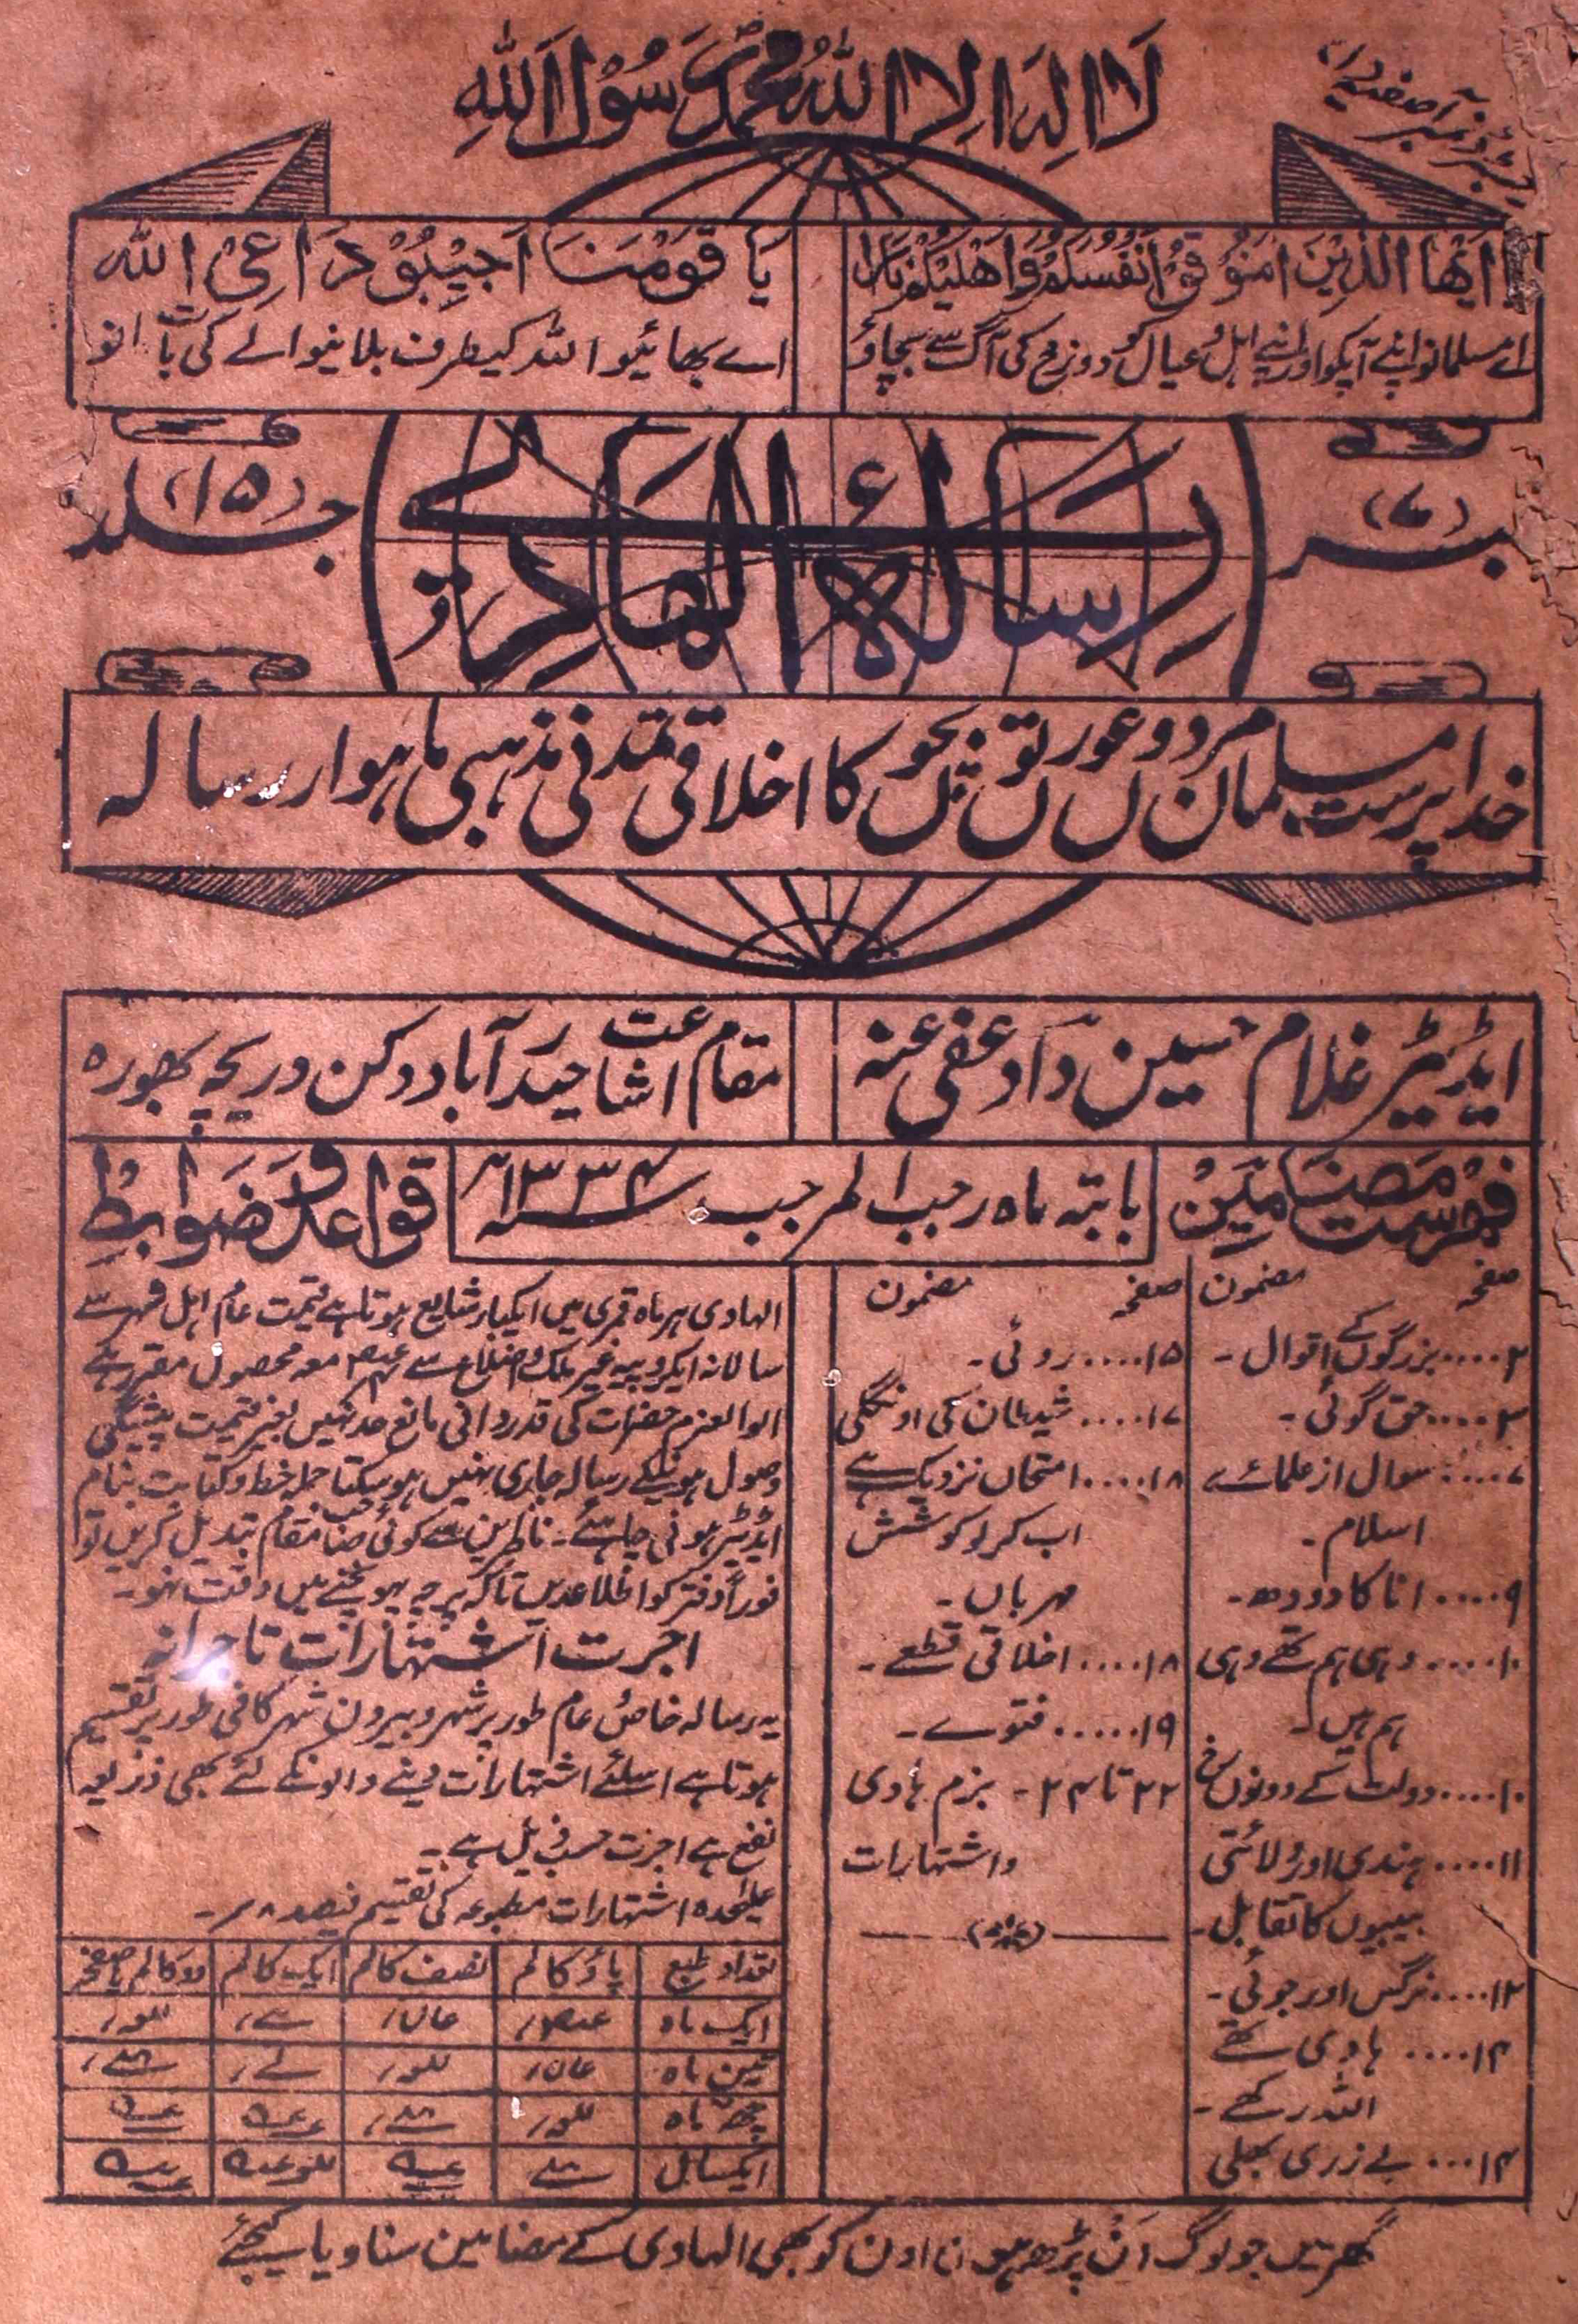 لَا اِلٰہَ اِلَّا اللّٰہُ مُحَمَّدٌ رَّسُوْلُ اللّٰہِ
رجسٹرڈ نمبر آصفیہ
ایھا الذین امنو قو انفسکم و اھلیکم نارا
اے مسلمانو اپنے آپکو اور اپنے اہل و عیال کو دوزخ کی آگ سے بچاؤ
یا قومنا اجیبو داعی اللہ
اے بھائیو اللہ کیطرف بلانیوالے کی بات مانو
نمبر (۷)
رسالۂ الہادی
جلد (۱۵)
خدا پرست مسلمان مردوں عورتوں بچوں کا اخلاقی تمدنی مذہبی ماہوار رسالہ
ایڈیٹر غلام حسین داؤد عفی عنہ
مقام اشاعت حیدرآباد دکن دریچہ بھورہ
فہرست مضامین
بابتہ ماہ رجب المرجب سنہ ۱۳۳۴
قواعد و ضوابط
صفحہ مضمون
۲ .... بزرگوں کے اقوال -
۳ .... حق گوئی -
۷ .... سوال از علمائے
اسلام -
۹ .... انا کا دودھ -
۱۰ .... وہی ہم تھے وہی
ہم ہیں -
۱۰ .... دولت کے دونوں رخ
۱۱ .... ہندی اور ولائتی
بیبیوں کا تقابل -
۱۲ .... نرگس اور جوئی -
۱۴ .... ہادی سکھے
اللہ رکھے -
۱۴ ... بے زری بھلی
صفحہ مضمون
۱۵ .... روئی -
۱۷ .... شیطان کی اونگلی
۱۸ .... امتحاں نزدیک ہے
اب کرلو کوشش
مہرباں -
۱۸ .... اخلاقی قطعے -
۱۹ .... فتوے -
۲۲ تا ۲۴ - بزم ہادی
واشتہارات
الہادی ہر ماہ قمری میں ایکبار شایع ہوتا ہے قیمت عام اہل شہر سے
سالانہ ایکروپیہ غیر ملک و اضلاع سے معہ محصول مقرر ہے
الوالعزم حضرات کی قدردانی مانع حد نہیں بغیر قیمت پیشگی
وصول ہونیکے رسالہ جاری نہیں ہوسکتا جملہ خط و کتابت بنام
ایڈیٹر ہونی چاہئے - ناظرین سے کوئی صاحب مقام تبدیل کریں تو
فوراً دفتر کو اطلاع دیں تاکہ پرچہ پہونچنے میں دقت نہو -
اجرت اشتہارات تاجرانہ
یہ رسالہ خاص عام طور پر شہر و بیرون شہر کافی طور پر تقسیم
ہوتا ہے اسلئے اشتہارات دینے والونکے لئے بھی ذریعہ
نفع ہے اجرت حسب ذیل ہے -
علیحدہ اشتہارات مطبوعہ کی تقسیم فیصد ۸ر -
تعداد طبع پاؤ کالم نصف کالم ایک کالم دو کالم یا صفحہ
ایک ماہ
تین ماہ
چھ ماہ
ایکسال
گھر میں جو لوگ ان پڑھ ہوں اون کو بھی الہادی کے مضامین سنا دیا کیجئے